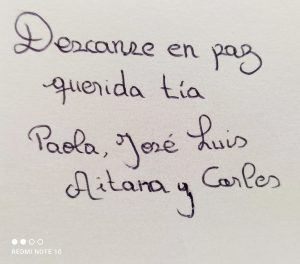 Descanse en paz
querida tía
Paola, José Luis
Aitana y Carles
REDMI NOTE 10